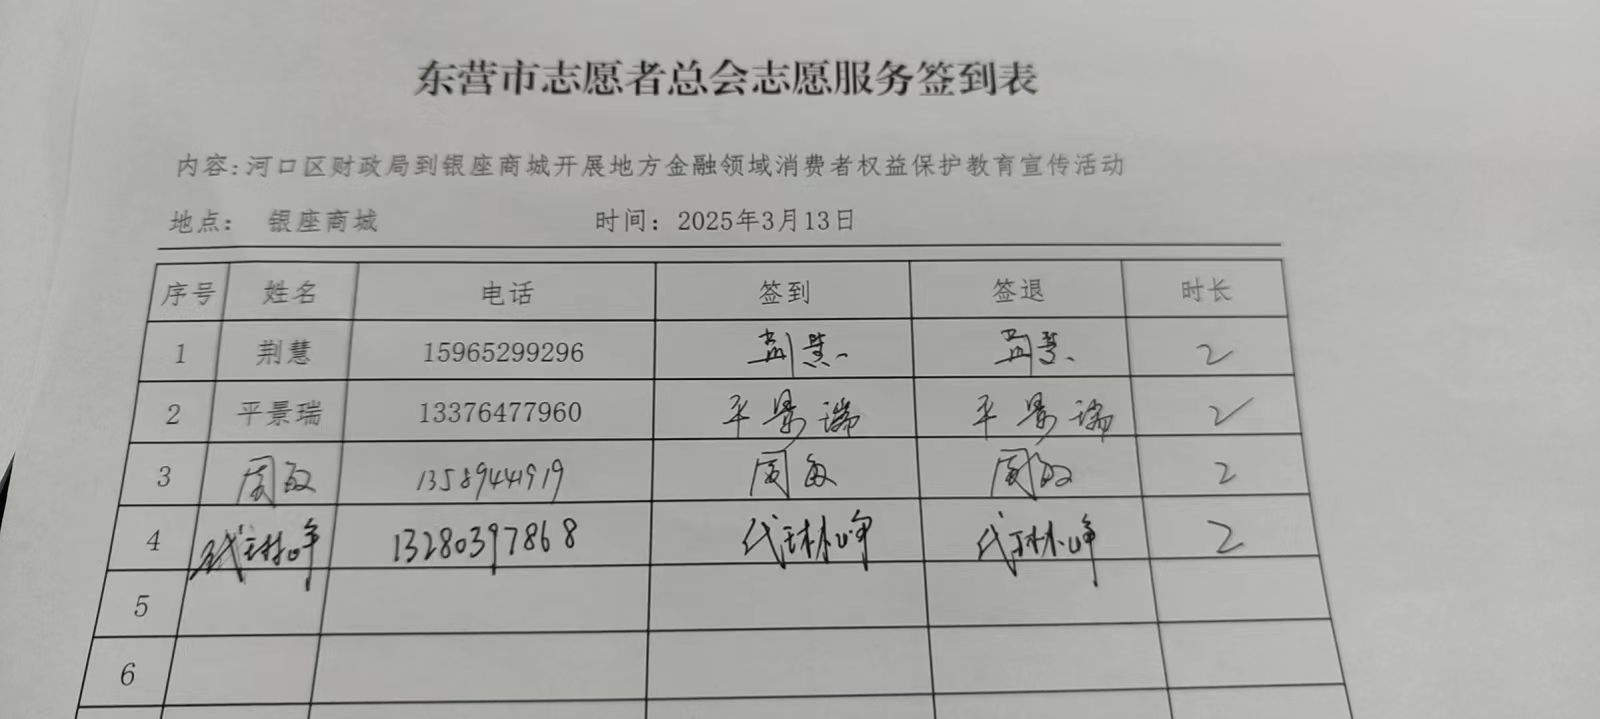 东营市志愿者总会志愿服务签到表
内容:河口区财政局到银座商城开展地方金融领域消费者权益保护教育宣传活动
地点： 银座商城 时间：2025年3月13日
序号 姓名 电话 签到 签退 时长
1 荆慧 15965299296 荆慧 荆慧 2
2 平景瑞 13376477960 平景瑞 平景瑞 2
3 周敏 周敏 周敏 2
4 代琳峥 13280397868 代琳峥 代琳峥 2
5
6